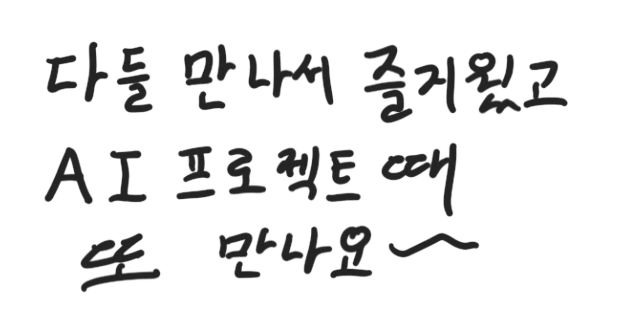 다들 만나서 즐거웠고
AI 프로젝트 때
또 만나요~